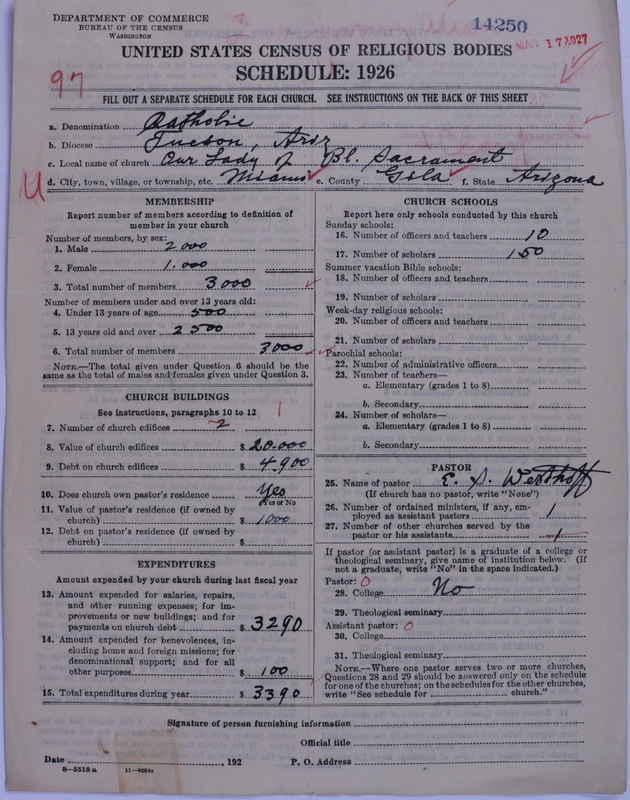 DEPARTMENT OF COMMERCE
BUREAU OF THE CENSUS
WASHINGTON
14250
MAR 17 1927
UNITED STATES CENSUS OF RELIGIOUS BODIES
SCHEDULE: 1926
97
FILL OUT A SEPARATE SCHEDULE FOR EACH CHURCH. SEE INSTRUCTIONS ON THE BACK OF THIS SHEET
a. Denomination Catholic
b. Diocese Tucson, Ariz
c. Local name of church Our Lady of Bl. Sacrament
d. City, town, village, or township, etc. Miami e. County Gila f. State Arizona
MEMBERSHIP
Report number of members according to definition of
member in your church
Number of members, by sex:
1. Male 2000
2. Female 1.000
3. Total number of members 3000
Number of members under and over 13 years old:
4. Under 13 years of age 500
5. 13 years old and over 2500
6. Total number of members 3000
NOTE.—The total given under Question 6 should be
same as the total of males and females given under Question 3.
CHURCH BUILDINGS
See instructions, paragraphs 10 to 12
1
7. Number of church edifices 2
8. Value of church edifices $ 20.000
9. Debt on church edifices $ 4.900
10. Does church own pastor's residence Yes
Yes or No
11. Value of pastor's residence (if owned by
church) $ 1000
12. Debt on pastor's residence (if owned by
church) $
EXPENDITURES
Amount expended by your church during last fiscal year
13. Amount expended for salaries, repairs,
and other running expenses; for im-
provements or new buildings; and for
payments on church debt $ 3290
14. Amount expended for benevolences, in-
cluding home and foreign missions; for
denominational support; and for all
other purposes $ 100
15. Total expenditures during year $ 3390
CHURCH SCHOOLS
Report here only schools conducted by this church
Sunday schools:
16. Number of officers and teachers 10
17. Number of scholars 150
Summer vacation Bible schools:
18. Number of officers and teachers
19. Number of scholars
Week-day religious schools:
20. Number of officers and teachers
21. Number of scholars
Parochial schools:
22. Number of administrative officers
23. Number of teachers—
a. Elementary (grades 1 to 8)
b. Secondary
24. Number of scholars—
a. Elementary (grades 1 to 8)
b. Secondary
PASTOR
25. Name of pastor E. S. Westhoff
(If church has no pastor, write "None")
26. Number of ordained ministers, if any, em-
ployed as assistant pastors 1
27. Number of other churches served by the
pastor or his assistants 1
If pastor (or assistant pastor) is a graduate of a college or
theological seminary, give name of institution below. (If
not a graduate, write "No" in the space indicated.)
Pastor: 0
28. College No
29. Theological seminary
Assistant pastor: 0
30. College
31. Theological seminary
NOTE.—Where one pastor serves two or more churches,
Questions 28 and 29 should be answered only on the schedule
for one of the churches; on the schedules for the other churches,
write "See schedule for church."
Signature of person furnishing information
Official title
Date , 192 P. O. Address
8—5518a 11—9664